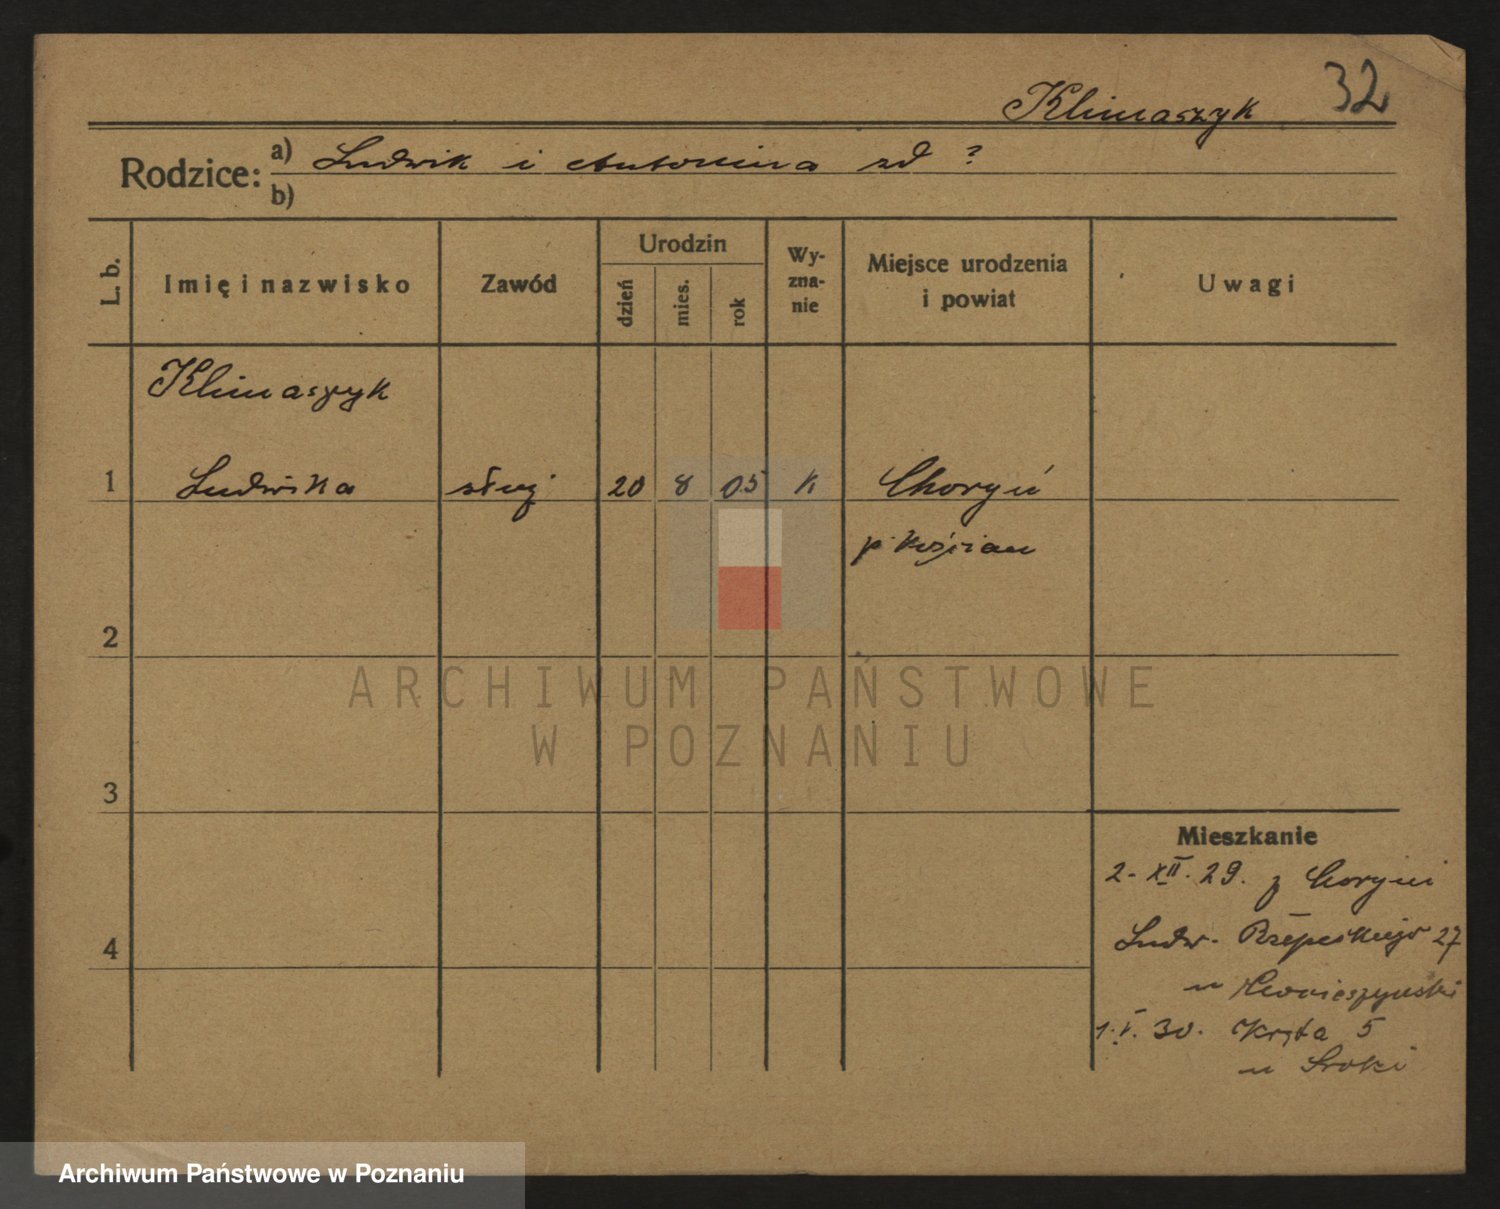 Klimaszyk 32
Rodzice: a) Ludwik i Antonina zd ?
b)
L. b.
Imię i nazwisko
Zawód
Urodzin
dzień
mies.
rok
Wy-
zna-
nie
Miejsce urodzenia
i powiat
Uwagi
Klimaszyk
1 Ludwika służ 20 8 05 K Choryń
p. Kościan
2
3
4
ARCHIWUM PAŃSTWOWE
W POZNANIU
Mieszkanie
2. XII. 29. z Choryni
Ludw. Rzepeckiego 27
u
1. V. 30. Kręta 5
u Sroki
Archiwum Państwowe w Poznaniu